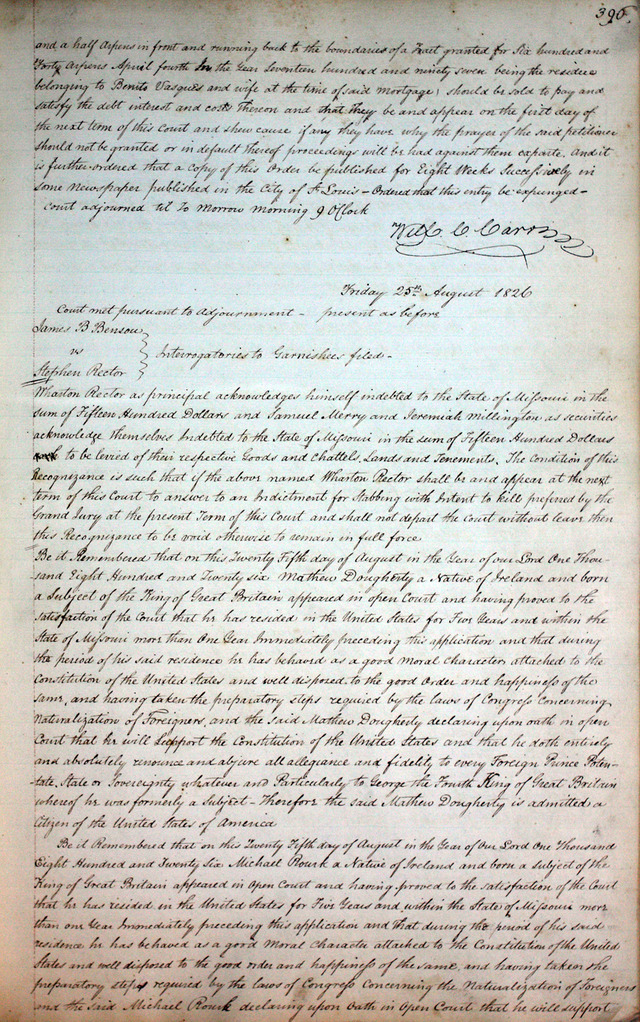 396.
and a half Arpens in front and running back to the boundaries of a Tract granted for Six hundred and
Forty Arpens April fourth In the Year Seventeen hundred and ninety seven being the residue
belonging to Benito Vasques and wife at the time of said mortgage, should be sold to pay and
satisfy the debt interest and costs thereon and that they be and appear on the first day of
the next term of this Court and shew cause if any they have why the prayer of the said petitioner
should not be granted or in default thereof proceedings will be had against them exparte. And it
is further ordered that a copy of this Order be published for Eight Weeks Successively in
some Newspaper published in the City of St Louis - Ordered that this entry be expunged -
Court adjourned til To Morrow morning 9 OClock
Will C Carr
Friday 25th August 1826
Court met pursuant to adjournment - present as before
James B Benson
vs
Interrogatories to Garnishees filed -
Stephen Rector
Wharton Rector as principal acknowledges himself indebted to the State of Missouri in the
sum of Fifteen Hundred Dollars and Samuel Merry and Jeremiah Millington as securities
acknowledge themselves Indebted to the State of Missouri in the sum of Fifteen Hundred Dollars
to be levied of their respective Goods and Chattels, Lands and Tenements. The Condition of this
Recognizance is such that if the above named Wharton Rector shall be and appear at the next
term of this Court to answer to an Indictment for Stabbing with Intent to kill prefered by the
Grand Jury at the present Term of this Court and shall not depart the Court without leave then
this Recognizance to be void otherwise to remain in full force
Be it Remembered that on this Twenty Fifth day of August in the Year of our Lord One Thou-
sand Eight Hundred and Twenty six Mathew Dougherty a Native of Ireland and born
a Subject of the King of Great Britain appeared in open Court and having proved to the
Satisfaction of the Court that he has resided in the United States for Five Years and within the
State of Missouri more than One Year Immediately preceding this application and that during
the period of his said residence he has behaved as a good Moral Character, attached to the
Constitution of the United States and well disposed, to the good Order and happiness of the
same, and having taken the preparatory steps required by the laws of Congress concerning
Naturalization of Foreigners, and the said Mathew Dougherty declaring upon oath in open
Court that he will Support the Constitution of the United States and that he doth entirely
and absolutely renounce and abjure all allegiance and fidelity to every Foreign Prince Poten-
-tate, State or Sovereignty whatever and Particularly to George the Fourth King of Great Britain
whereof he was formerly a Subject - Therefore the said Mathew Dougherty is admitted a
Citizen of the United States of America
Be it Remembered that on this Twenty Fifth day of August in the Year of Our Lord One Thousand
Eight Hundred and Twenty six Michael Rourk a Native of Ireland and born a Subject of the
King of Great Britain appeared in Open Court and having proved to the Satisfaction of the Court
that he has resided in the United States for Five Years and within the State of Missouri more
than one Year Immediately preceding this application and that during the period of his said
residence he has behaved as a good Moral Character attached to the Constitution of the United
States and well disposed to the good order and happiness of the same, and having taken the
preparatory steps required by the laws of Congress Concerning the Naturalization of Foreigners
and the said Michael Rourk declaring upon Oath in Open Court that he will support